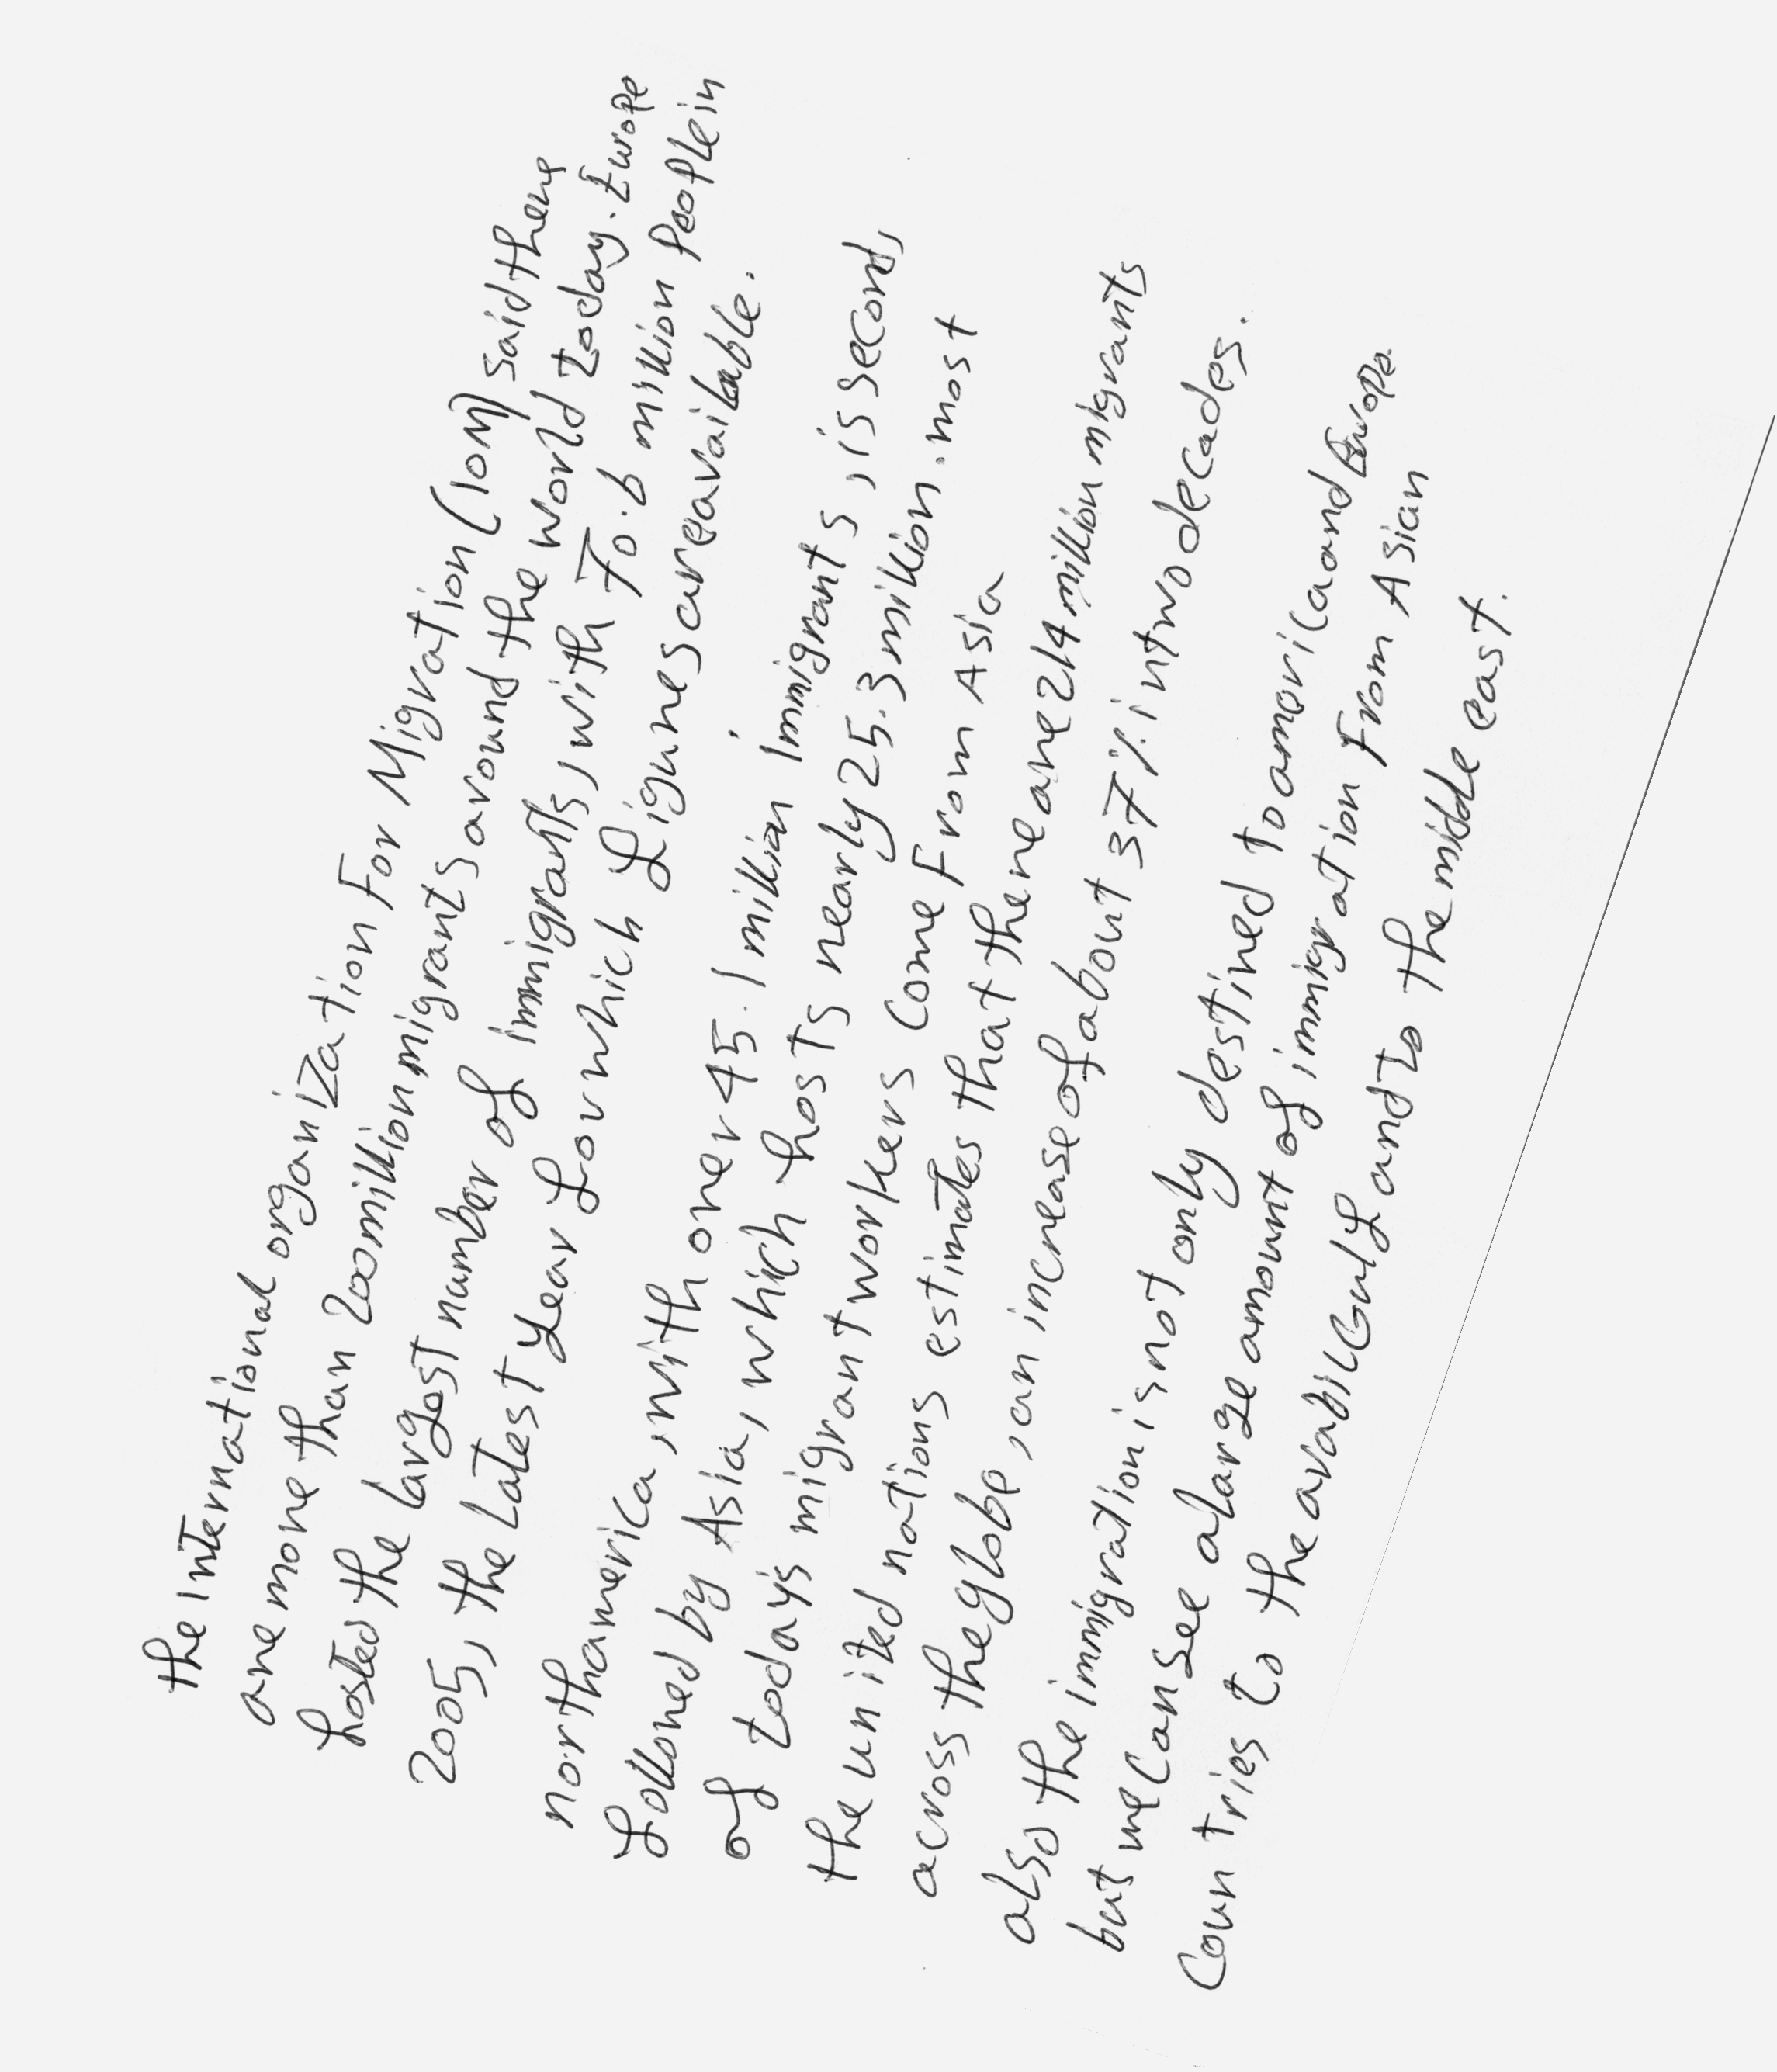 the International organization For Migration (IOM) said there
are more than 200 million migrants around the world today. Europe
hosted the largest number of immigrants, with 70.6 million people in
2005, the latest year for which figures are available.
north america, with over 45.1 million immigrants, is second,
followed by Asia, which hosts nearly 25.3 million. most
of today's migrant workers come From Asia
the united nations estimates that there are 214 million migrants
across the globe, an increase of about 37% in two decades.
also the immigration is not only destined to america and Europe.
but we can see a large amount of immigration From Asian
countries to the arabic Gulf and to the middle east.